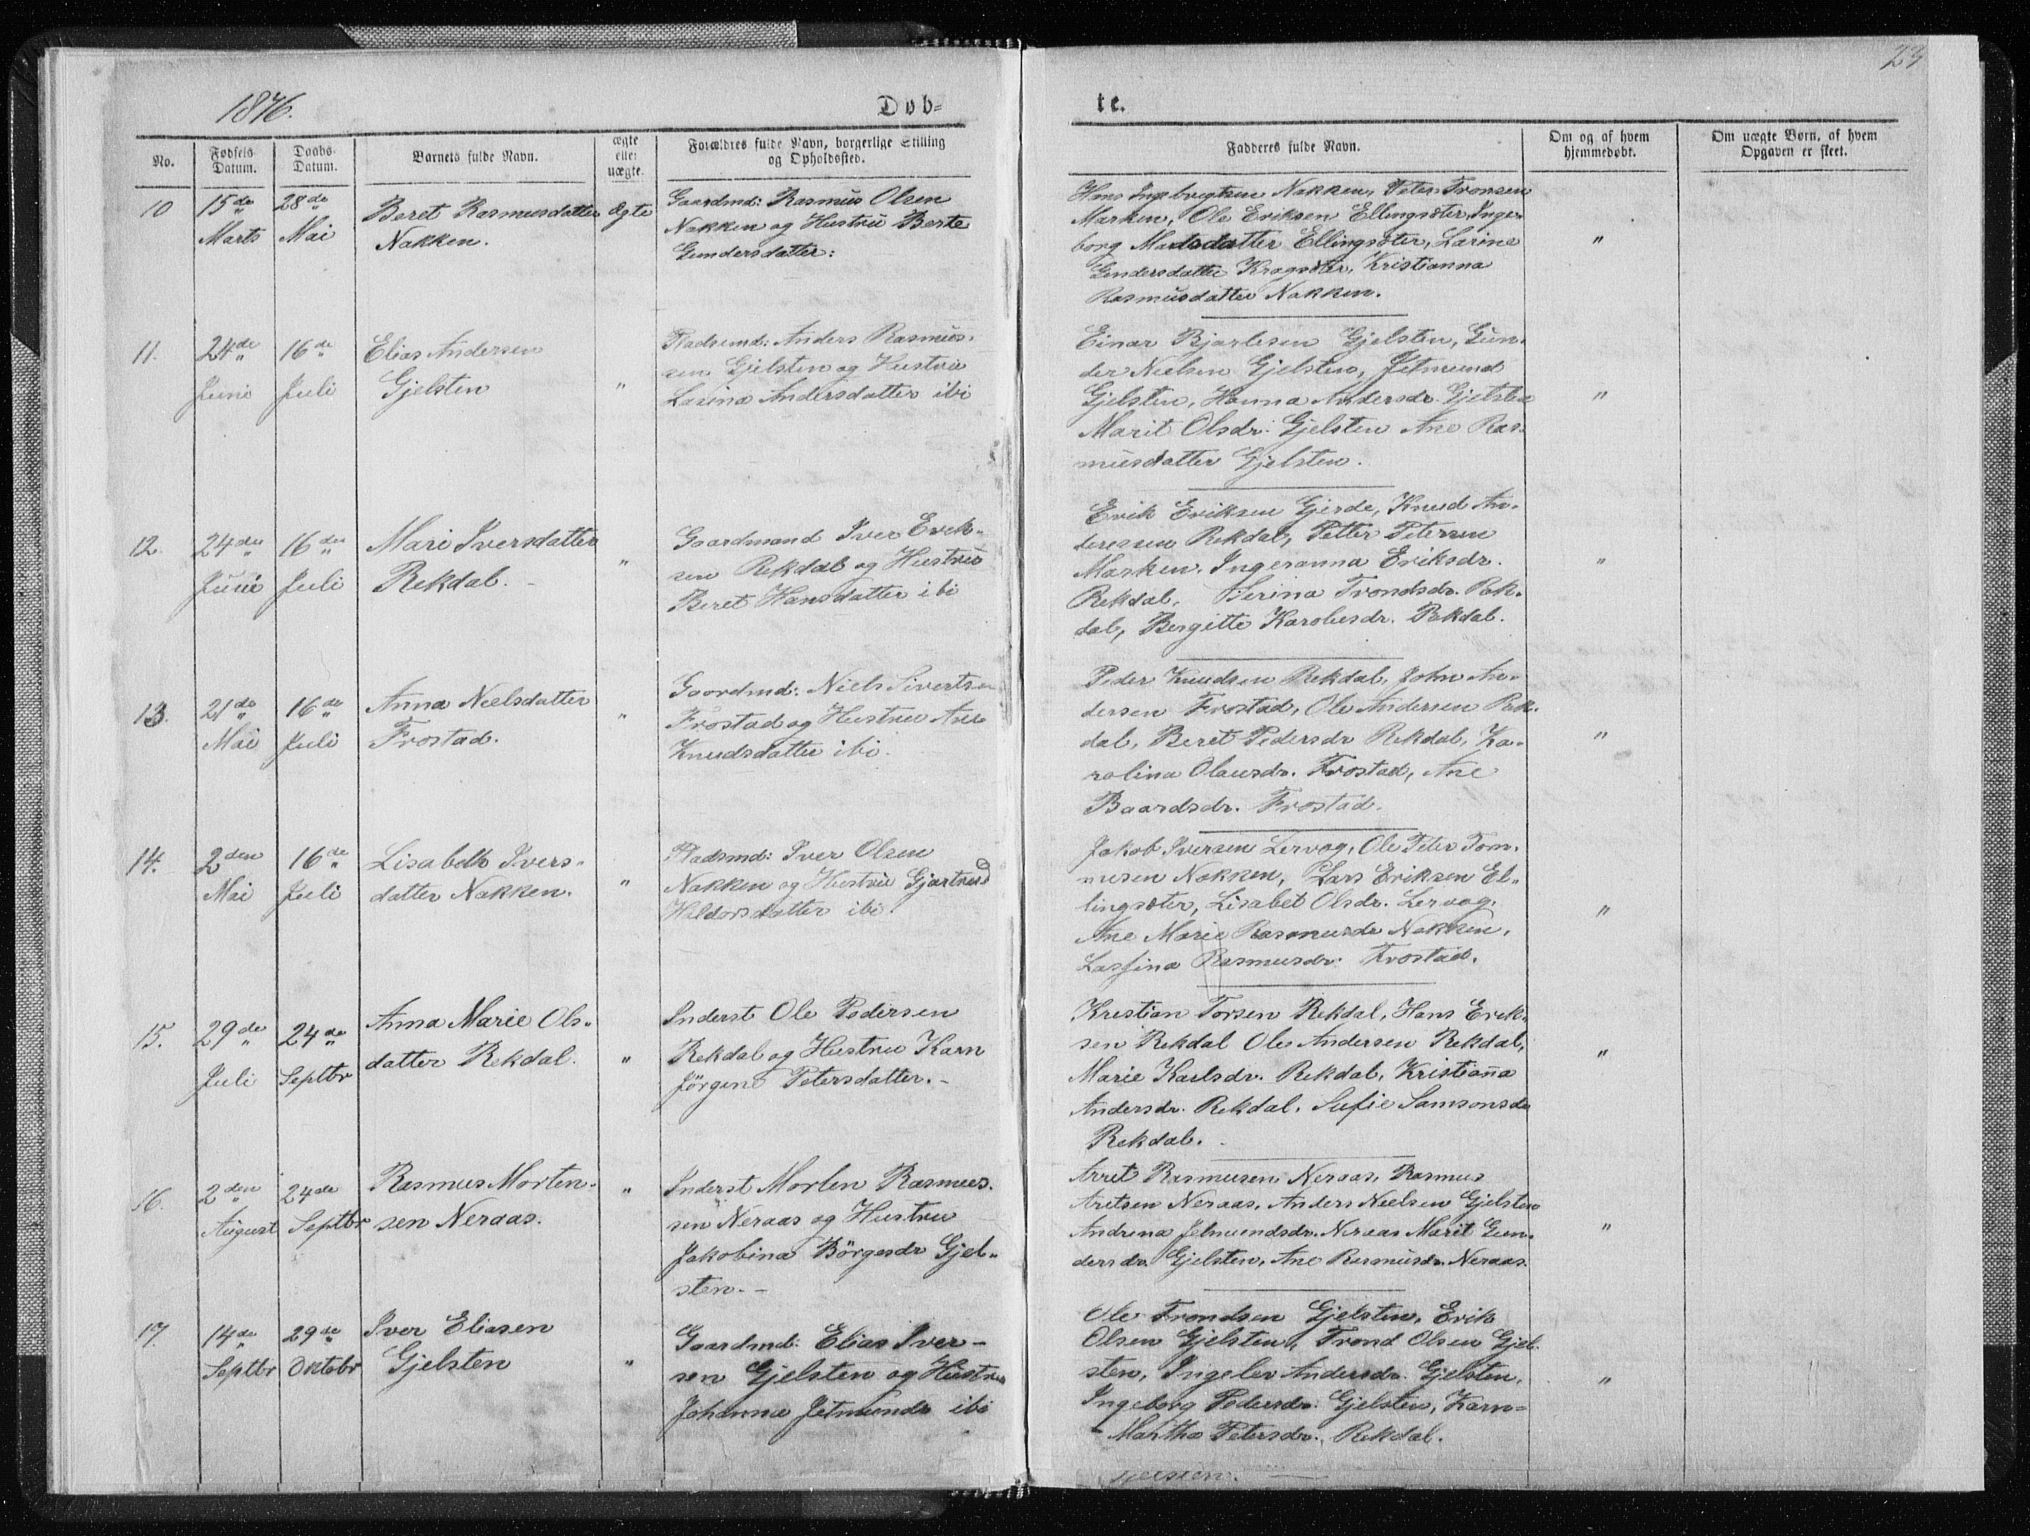 23
1876.
Døb-
te.
No.
Fødsels
Datum.
Daabs
Datum.
Barnets fulde Navn.
ægte
eller
uægte.
Forældres fulde Navn, borgerlige Stilling
og Opholdssted.
Fadderes fulde Navn.
Om og af hvem
hjemmedøbt.
Om uægte Børn, af hvem
Opgaven er skeet.
10
15de
Marts
28de
Mai
Beret Rasmusdatter
Nakken.
ægte
Gaardmd: Rasmus Olsen
Nakken og Hustrü Berte
Gundersdatter:
Hans Ingebrigtsen Nakken, Peter Tronsen
Marken, Ole Eriksen Ellingsøter, Inge-
borg Madsdatter Ellingsøter, Larine
Gundersdatter Kragsøter, Kristianna
Rasmusdatter Nakken.
"
11.
24de
Juni
16de
Juli
Elias Andersen
Gjelsten
"
Pladsmd: Anders Rasmus-
sen Gjelsten og Hustru
Lasina Andersdatter ibi
Einar Bjarlesen Gjelsten, Gun-
der Nielsen Gjelsten, Jetmund
Gjelsten, Hanna Andersdr. Gjelsten
Marit Olsdr. Gjelsten Ane Ras-
musdatter Gjelsten.
"
12.
24de
Juni
16de
Juli
Mari Iversdatter
Rekdal.
"
Gaardmand Iver Erik-
sen Rekdal og Hustru
Beret Hansdatter ibi
Erik Eriksen Gjerde, Knud An-
derssen Rekdal, Petter Petersen
Marken, Ingeranna Eriksdr.
Rekdal, Serina Trondsdr. Rek-
dal, Bergitte Karolusdr. Rekdal.
"
13.
21de
Mai
16de
Juli
Anna Nielsdatter
Frostad.
"
Gaardmd: Niels Sivertsen
Frostad og Hustru Ane
Knudsdatter ibi.
Peder Knudsen Rekdal, John An-
dersen Frostad, Ole Andersen Rek-
dal, Beret Pedersdr Rekdal, Ka-
rolina Olausdr. Frostad, Ane
Baardsdr. Frostad.
"
14.
2den
Mai
16de
Juli
Lisabeth Ivers-
datter Nakken.
"
Pladsmd: Iver Olsen
Nakken og Hustrü Gjartrud
Haldorsdatter ibi.
Jakob Iversen Lervag, Ole Peter Tom-
musen Nakken, Lars Eriksen El-
lingsøter, Lisabet Olsdr. Lervag.
Ane Marie Rasmusdr Nakken,
Rasmusdr. Frostad.
"
15.
29de
Juli
24de
Septbr
Anna Marie Ols-
datter Rekdal.
"
Inderst Ole Pedersen
Rekdal og Hustru Karn
Jørgen Petersdatter.
Kristian Torsen Rekdal, Hans Erik-
sen Rekdal Ole Andersen Rekdal,
Marie Karlsdr. Rekdal, Kristianna
Andersdr. Rekdal, Sufie Samsonsdr
Rekdal.
"
16.
2den
August
24de
Septbr
Rasmus Morten-
sen Neraas.
"
Inderst Morten Rasmus-
sen Neraas og Hustru
Jakobina Børgesdr Gjel-
sten.
Arret Rasmusen Neraas, Rasmus
Aretsen Neraas, Anders Nielsen Gjelsten
Andrina Jetmundsdr. Neraas Marit Gun-
dersdr. Gjelsten, Ane Rasmusdr. Neraas.
"
17.
14de
Septbr
29de
Oktobr
Iver Eliasen
Gjelsten
"
Gaardmd: Elias Iver-
sen Gjelsten og Hustru
Johanna Jetmundr ibi
Ole Trondsen Gjelsten, Erik
Olsen Gjelsten, Trond Olsen Gjel-
sten, Ingelev Andersdr. Gjelsten,
Ingeborg Pedersdr. Gjelsten, Karn-
Martha Petersdr. Rekdal.
"